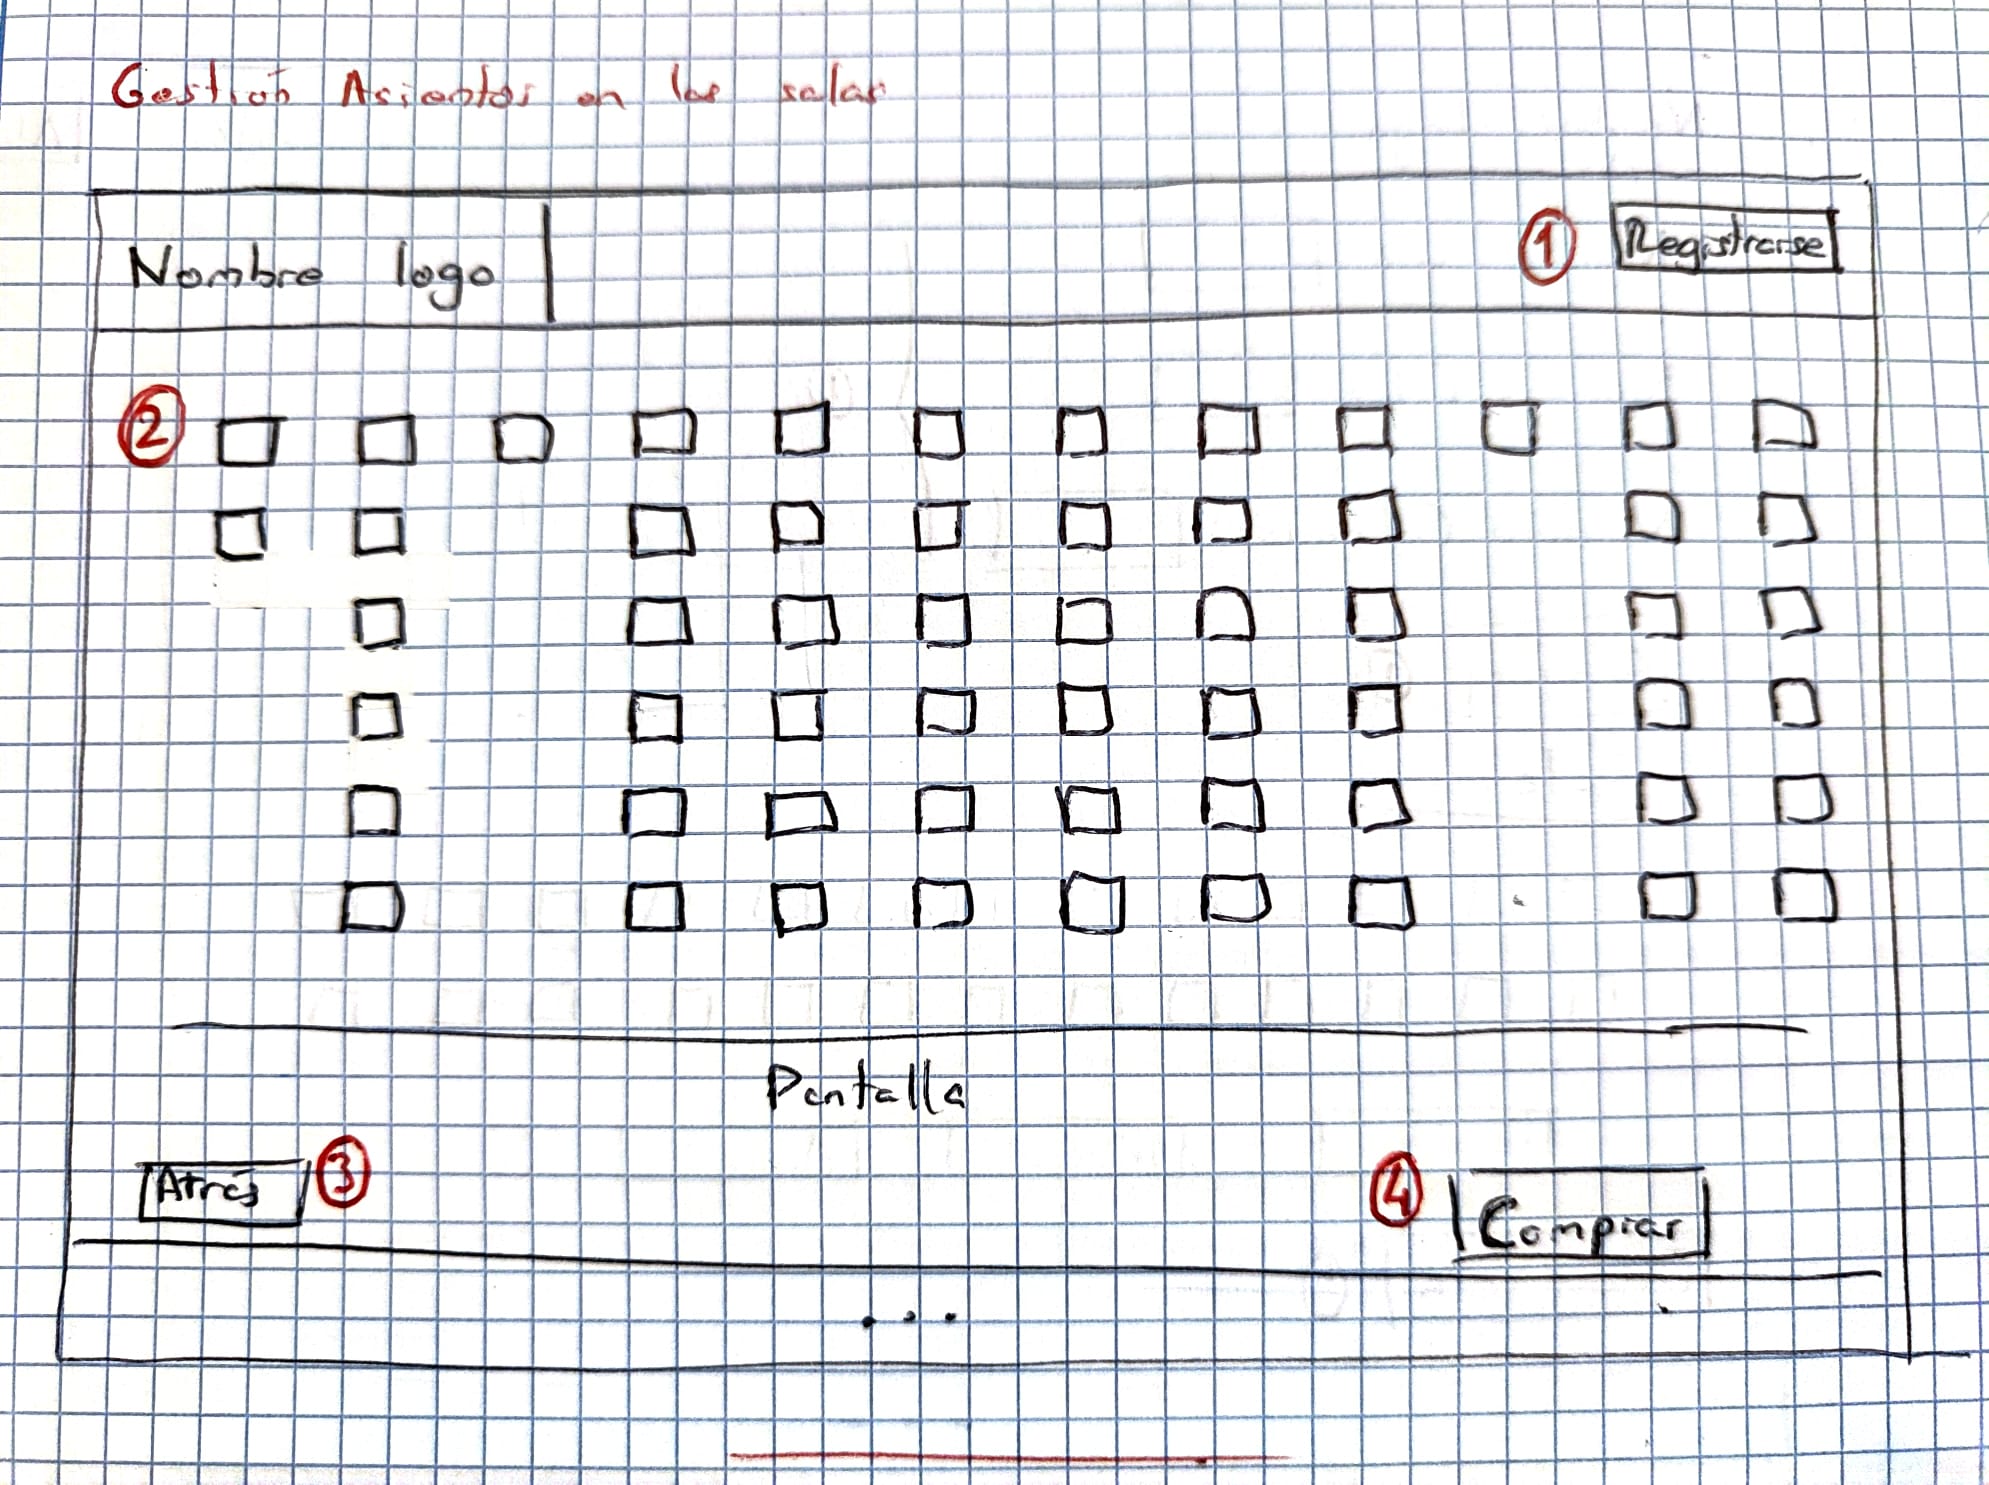 Gestión Asientos en las salas
Nombre logo
1 Registrarse
2
Pantalla
Atrás 3
4 Comprar
...